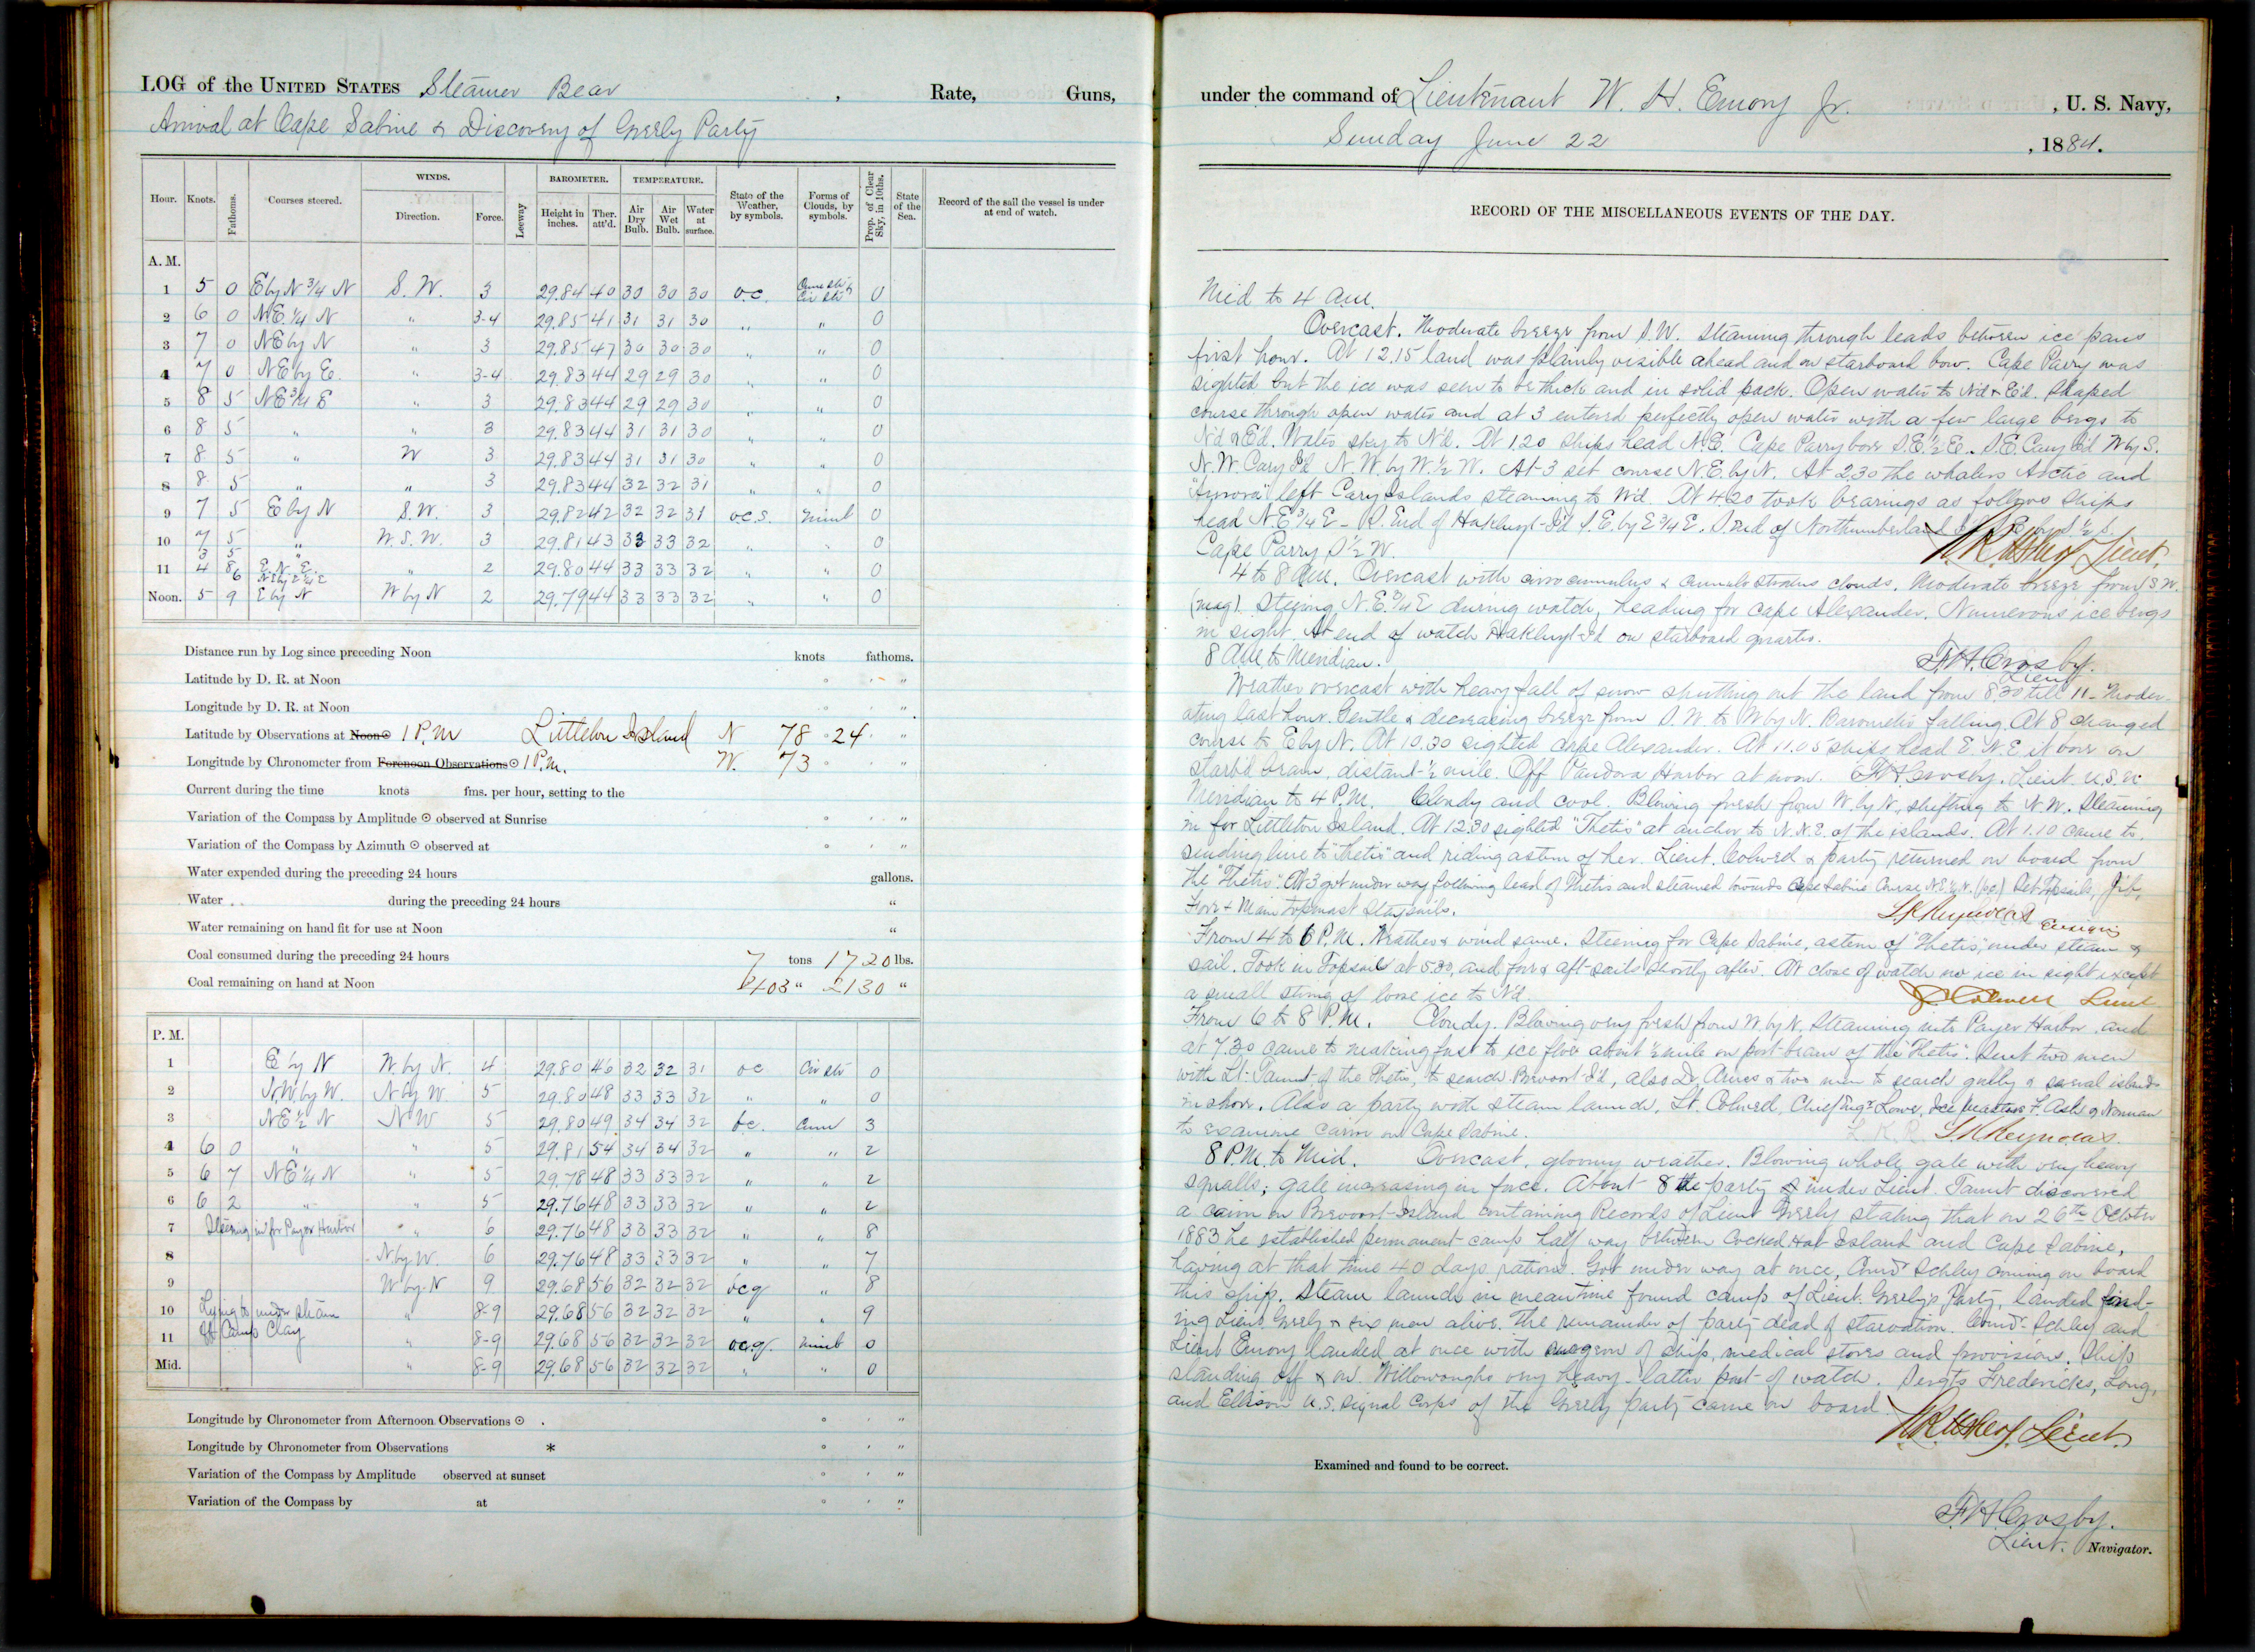 LOG of the UNITED STATES Steamer Bear , Rate, Guns,
Arrival at Cape Sabine & Discovery of Greely Party
Hour. Knots. Fathoms. Courses steered. WINDS. Direction. Force. Leeway BAROMETER. Height in inches. Ther. att'd. TEMPERATURE. Air Dry Bulb. Air Wet Bulb. Water at surface. State of the Weather, by symbols. Forms of Clouds, by symbols. Prop. of Clear Sky, in 10ths. State of the Sea. Record of the sail the vessel is under at end of watch.
A. M.
1 5 0 E by N 3/4 N S. W. 3 29.84 40 30 30 30 o.c. Cum Str & Cir Str 0
2 6 0 NE 1/4 N " 3-4 29.85 41 31 31 30 " " 0
3 7 0 NE by N " 3 29.85 47 30 30 30 " " 0
4 7 0 NE by E. " 3-4 29.83 44 29 29 30 " " 0
5 8 5 NE 3/4 E " 3 29.83 44 29 29 30 " " 0
6 8 5 " " 3 29.83 44 31 31 30 " " 0
7 8 5 " W 3 29.83 44 31 31 30 " " 0
8 8 5 " " 3 29.83 44 32 32 31 " " 0
9 7 5 E by N S.W. 3 29.82 42 32 32 31 o.c.s. Nimb 0
10 7 5 " W.S.W. 3 29.81 43 33 33 32 " " 0
3 5 "
11 4 8 E.N.E. " 2 29.80 44 33 33 32 " " 0
6 N E by E 1/4 E
Noon. 5 9 E by N W by N 2 29.79 44 33 33 32 " " 0
Distance run by Log since preceding Noon knots fathoms.
Latitude by D. R. at Noon ° ' "
Longitude by D. R. at Noon ° ' "
Latitude by Observations at Noon ⊙ 1 P.M Littleton Island N 78 ° 24 ' "
Longitude by Chronometer from Forenoon Observations ⊙ 1 P.M. W. 73 ° "
Current during the time knots fms. per hour, setting to the
Variation of the Compass by Amplitude ⊙ observed at Sunrise ° ' "
Variation of the Compass by Azimuth ⊙ observed at ° ' "
Water expended during the preceding 24 hours gallons.
Water during the preceding 24 hours "
Water remaining on hand fit for use at Noon "
Coal consumed during the preceding 24 hours 7 tons 1720 lbs.
Coal remaining on hand at Noon 403 " 2130 "
P. M.
1 E by N W by N. 4 29.80 46 32 32 31 oc Cir str 0
2 N.W. by W. N by W. 5 29.80 48 33 33 32 " " 0
3 NE 1/2 N NW 5 29.80 49 34 34 32 bc. Cum 3
4 6 0 " " 5 29.81 54 34 34 32 " " 2
5 6 7 NE 1/4 N " 5 29.78 48 33 33 32 " " 2
6 6 2 " " 5 29.76 48 33 33 32 " " 2
7 Steering in for Payer Harbor " 6 29.76 48 33 33 32 " " 8
8 N by W. 6 29.76 48 33 33 32 " " 7
9 W by N 9 29.68 56 32 32 32 bcq " 8
10 Lying to under steam " 8-9 29.68 56 32 32 32 " " 9
11 off Camp Clay " 8-9 29.68 56 32 32 32 o.c.q. Nimb 0
Mid. " 8-9 29.68 56 32 32 32 " " 0
Longitude by Chronometer from Afternoon Observations ⊙ ° ' "
Longitude by Chronometer from Observations * ° ' "
Variation of the Compass by Amplitude observed at sunset ° ' "
Variation of the Compass by at ° ' "
under the command of Lieutenant W. H. Emory Jr. , U. S. Navy,
Sunday June 22 , 1884.
RECORD OF THE MISCELLANEOUS EVENTS OF THE DAY.
Mid to 4 a.m.
Overcast. Moderate breeze from S.W. Steaming through leads between ice pans
first hour. At 12.15 land was plainly visible ahead and on starboard bow. Cape Parry was
sighted but the ice was seen to be thick and in solid pack. Open water to N'd & E'd. Shaped
course through open water and at 3 entered perfectly open water with a few large bergs to
N'd & E'd. Water sky to N'd. At 1.20 ships head N.E. Cape Parry bore S.E. 1/2 E. S.E. Cary I'd W by S.
N.W. Cary I'd N.W. by W. 1/2 W. At 3 set course N.E. by N. At 2.30 the whalers Arctic and
"Aurora" left Cary Islands steaming to N'd. At 4.20 took bearings as follows Ships
head N.E. 3/4 E - S. End of Hakluyt I'd S.E. by E 3/4 E. S. end of Northumberland S. 1/2 S.
Cape Parry S 1/2 W. Lieut.
4 to 8 A.M. Overcast with cirro cumulus & cumulo stratus clouds. Moderate breeze from S.W.
(mag). Steering N.E. 3/4 E during watch, heading for Cape Alexander. Numerous ice bergs
in sight. At end of watch Hakluyt I'd on starboard quarter.
F.H. Crosby. Lieut
8 A.M. to Meridian.
Weather overcast with heavy fall of snow shutting out the land from 8.30 till 11 - Moder-
ating last hour. Gentle & decreasing breeze from S.W. to W by N. Barometer falling. At 8 changed
course to E by N. At 10.30 sighted Cape Alexander. At 11.05 ships head E.N.E. it bore on
starb'd beam, distant 1/2 mile. Off Pandora Harbor at noon. F.H. Crosby. Lieut. U.S.N.
Meridian to 4 P.M. Cloudy and cool. Blowing fresh from W. by N, shifting to N.W. Steaming
in for Littleton Island. At 12.30 sighted "Thetis" at anchor to N.N.E. of the islands. At 1.10 came to.
sending line to "Thetis" and riding astern of her. Lieut. Colwell & party returned on board from
the "Thetis". At 3 got under way following lead of Thetis and steamed towards Cape Sabine Course NE 1/2 N. (p.c.) Set Topsails, Jib,
Fore & Main topmast Staysails.
L K Reynolds Ensign
From 4 to 6 P.M. Weather & wind same. Steering for Cape Sabine, astern of "Thetis", under steam &
sail. Took in Topsail at 5.30, and fore & aft-sails shortly after. At close of watch no ice in sight except
a small string of loose ice to N'd. J. Colwell Lieut
From 6 to 8 P.M. Cloudy. Blowing very fresh from W. by N. Steaming into Payer Harbor, and
at 7.30 came to making fast to ice floe about 1/2 mile on port-beam of the "Thetis". Sent two men
with Lt. Taunt of the Thetis, to search Brevoort I'd, also Dr Ames & two men to search gully & several islands
in shore. Also a party with steam launch, Lt. Colwell, Chief Eng'r Lowe, Ice Masters F. Ash & Norman
to examine cairn on Cape Sabine. L K Reynolds.
8 P.M. to Mid. Overcast, gloomy weather. Blowing whole gale with very heavy
squalls; gale increasing in force. About 8 the party under Lieut. Taunt discovered
a cairn on Brevoort Island containing Records of Lieut Greely stating that on 26th October
1883 he established permanent camp half way between Cocked Hat Island and Cape Sabine,
having at that time 40 days rations. Got under way at once, Com'd'r Schley coming on board
this ship. Steam launch in meantime found camp of Lieut. Greely's Party, landed find-
ing Lieut. Greely & six men alive. The remainder of party dead of starvation. Com'd'r Schley and
Lieut Emory landed at once with surgeon of ship, medical stores and provisions. Ship
standing off & on. Willowoughs very heavy latter part of watch. Sergts Fredericks, Long,
and Ellison U.S. Signal Corps of the Greely party came on board.
Lieut.
Examined and found to be correct.
F.H. Crosby.
Lieut. Navigator.